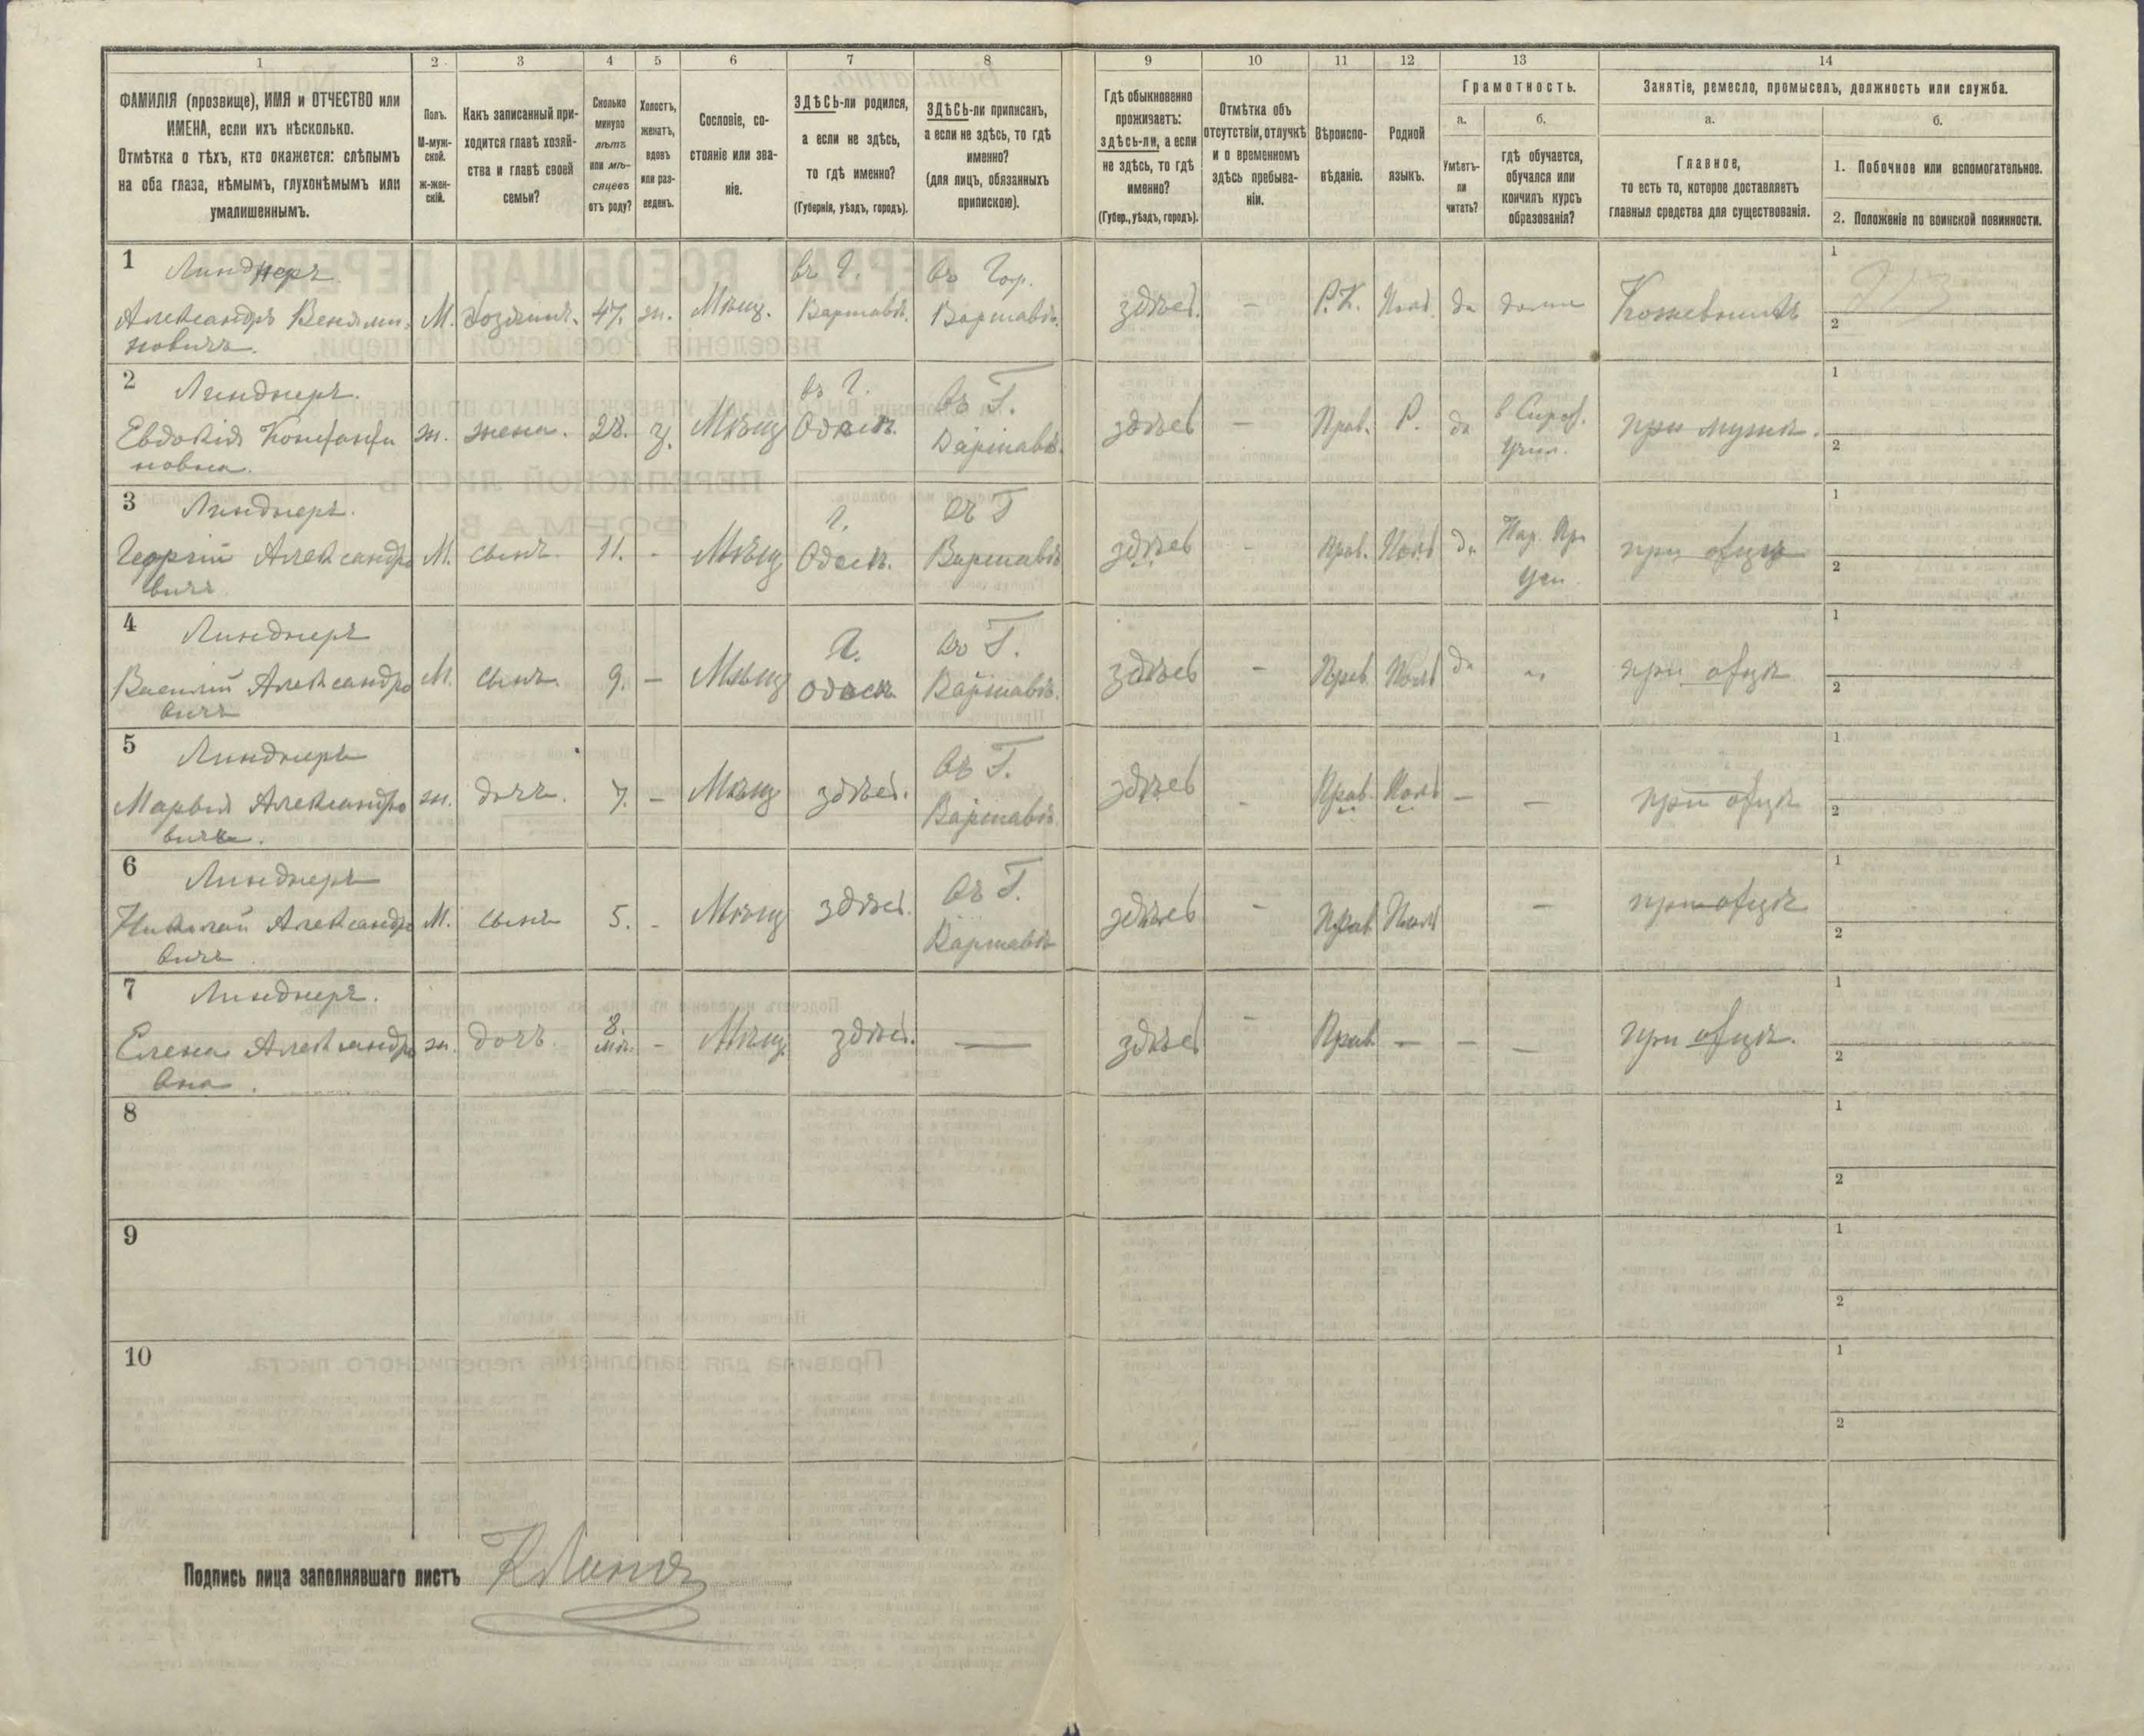 1 2 3 4 5 6 7 8 9 10 11 12 13 14
ФАМИЛІЯ (прозвище), ИМЯ и ОТЧЕСТВО или
ИМЕНА, если ихъ нѣсколько.
Отмѣтка о тѣхъ, кто окажется: слѣпымъ
на оба глаза, нѣмымъ, глухонѣмымъ или
умалишеннымъ.
Полъ.
М-муж-
ской.
ж-жен-
скій.
Какъ записанный при-
ходится главѣ хозяй-
ства и главѣ своей
семьи?
Сколько
минуло
лѣтъ
или мѣ-
сяцевъ
отъ роду?
Холостъ,
женатъ,
вдовъ
или раз-
веденъ.
Сословіе, со-
стояніе или зва-
ніе.
ЗДѢСЬ-ли родился,
а если не здѣсь,
то гдѣ именно?
(Губернія, уѣздъ, городъ).
ЗДѢСЬ-ли приписанъ,
а если не здѣсь, то гдѣ
именно?
(для лицъ, обязанныхъ
припискою).
Гдѣ обыкновенно
проживаетъ:
здѣсь-ли, а если
не здѣсь, то гдѣ
именно?
(Губер., уѣздъ, городъ).
Отмѣтка объ
отсутствіи, отлучкѣ
и о временномъ
здѣсь пребыва-
ніи.
Вѣроиспо-
вѣданіе.
Родной
языкъ.
Грамотность.
а.
Умѣетъ-
ли
читать?
б.
гдѣ обучается,
обучался или
кончилъ курсъ
образованія?
Занятіе, ремесло, промыселъ, должность или служба.
а.
Главное,
то есть то, которое доставляетъ
главныя средства для существованія.
б.
1. Побочное или вспомогательное.
2. Положеніе по воинской повинности.
1 Линднеръ. въ г. въ Гор. 1
Александръ Веніями- М. Хозяинъ. 47. ж. Мѣщ. Варшавѣ. Варшавѣ. здѣсь. - Р.К. Пол. да дома Кожевникъ 2
новичъ.
2 Линднеръ. въ г. въ Г. 1
Евдокія Константи ж. жена. 28. з. Мѣщ Одессѣ. Варшавѣ. здѣсь - Прав. Р. да Учил. при мужѣ. 2
новна.
3 Линднеръ. г. въ Г 1
Георгій Александро М. сынъ. 11. - Мѣщ Одессѣ. Варшавѣ здѣсь - Прав. Поль да при отцѣ 2
вичъ
4 Линднеръ г. въ Г. 1
Василій Александро М. сынъ. 9. - Мѣщ Одессѣ Варшавѣ. здѣсь - Прав Поль да „ при отцѣ 2
вичъ
5 Линднеръ въ Г. 1
Марія Александро ж. дочь. 7. - Мѣщ здѣсь. Варшавѣ здѣсь - Прав. Поль - - при отцѣ 2
6 Линднеръ въ Г. 1
Николай Александро М. сынъ 5. - Мѣщ здѣсь. Варшавѣ здѣсь - Прав. Поль - при отцѣ 2
вичъ
7 Линднеръ. 8. 1
Елена Александро ж. дочь мѣ. - Мѣщ. здѣсь. — здѣсь - Прав. - - - при отцѣ. 2
вна.
8 1
2
9 1
2
10 1
2
Подпись лица заполнявшаго листъ